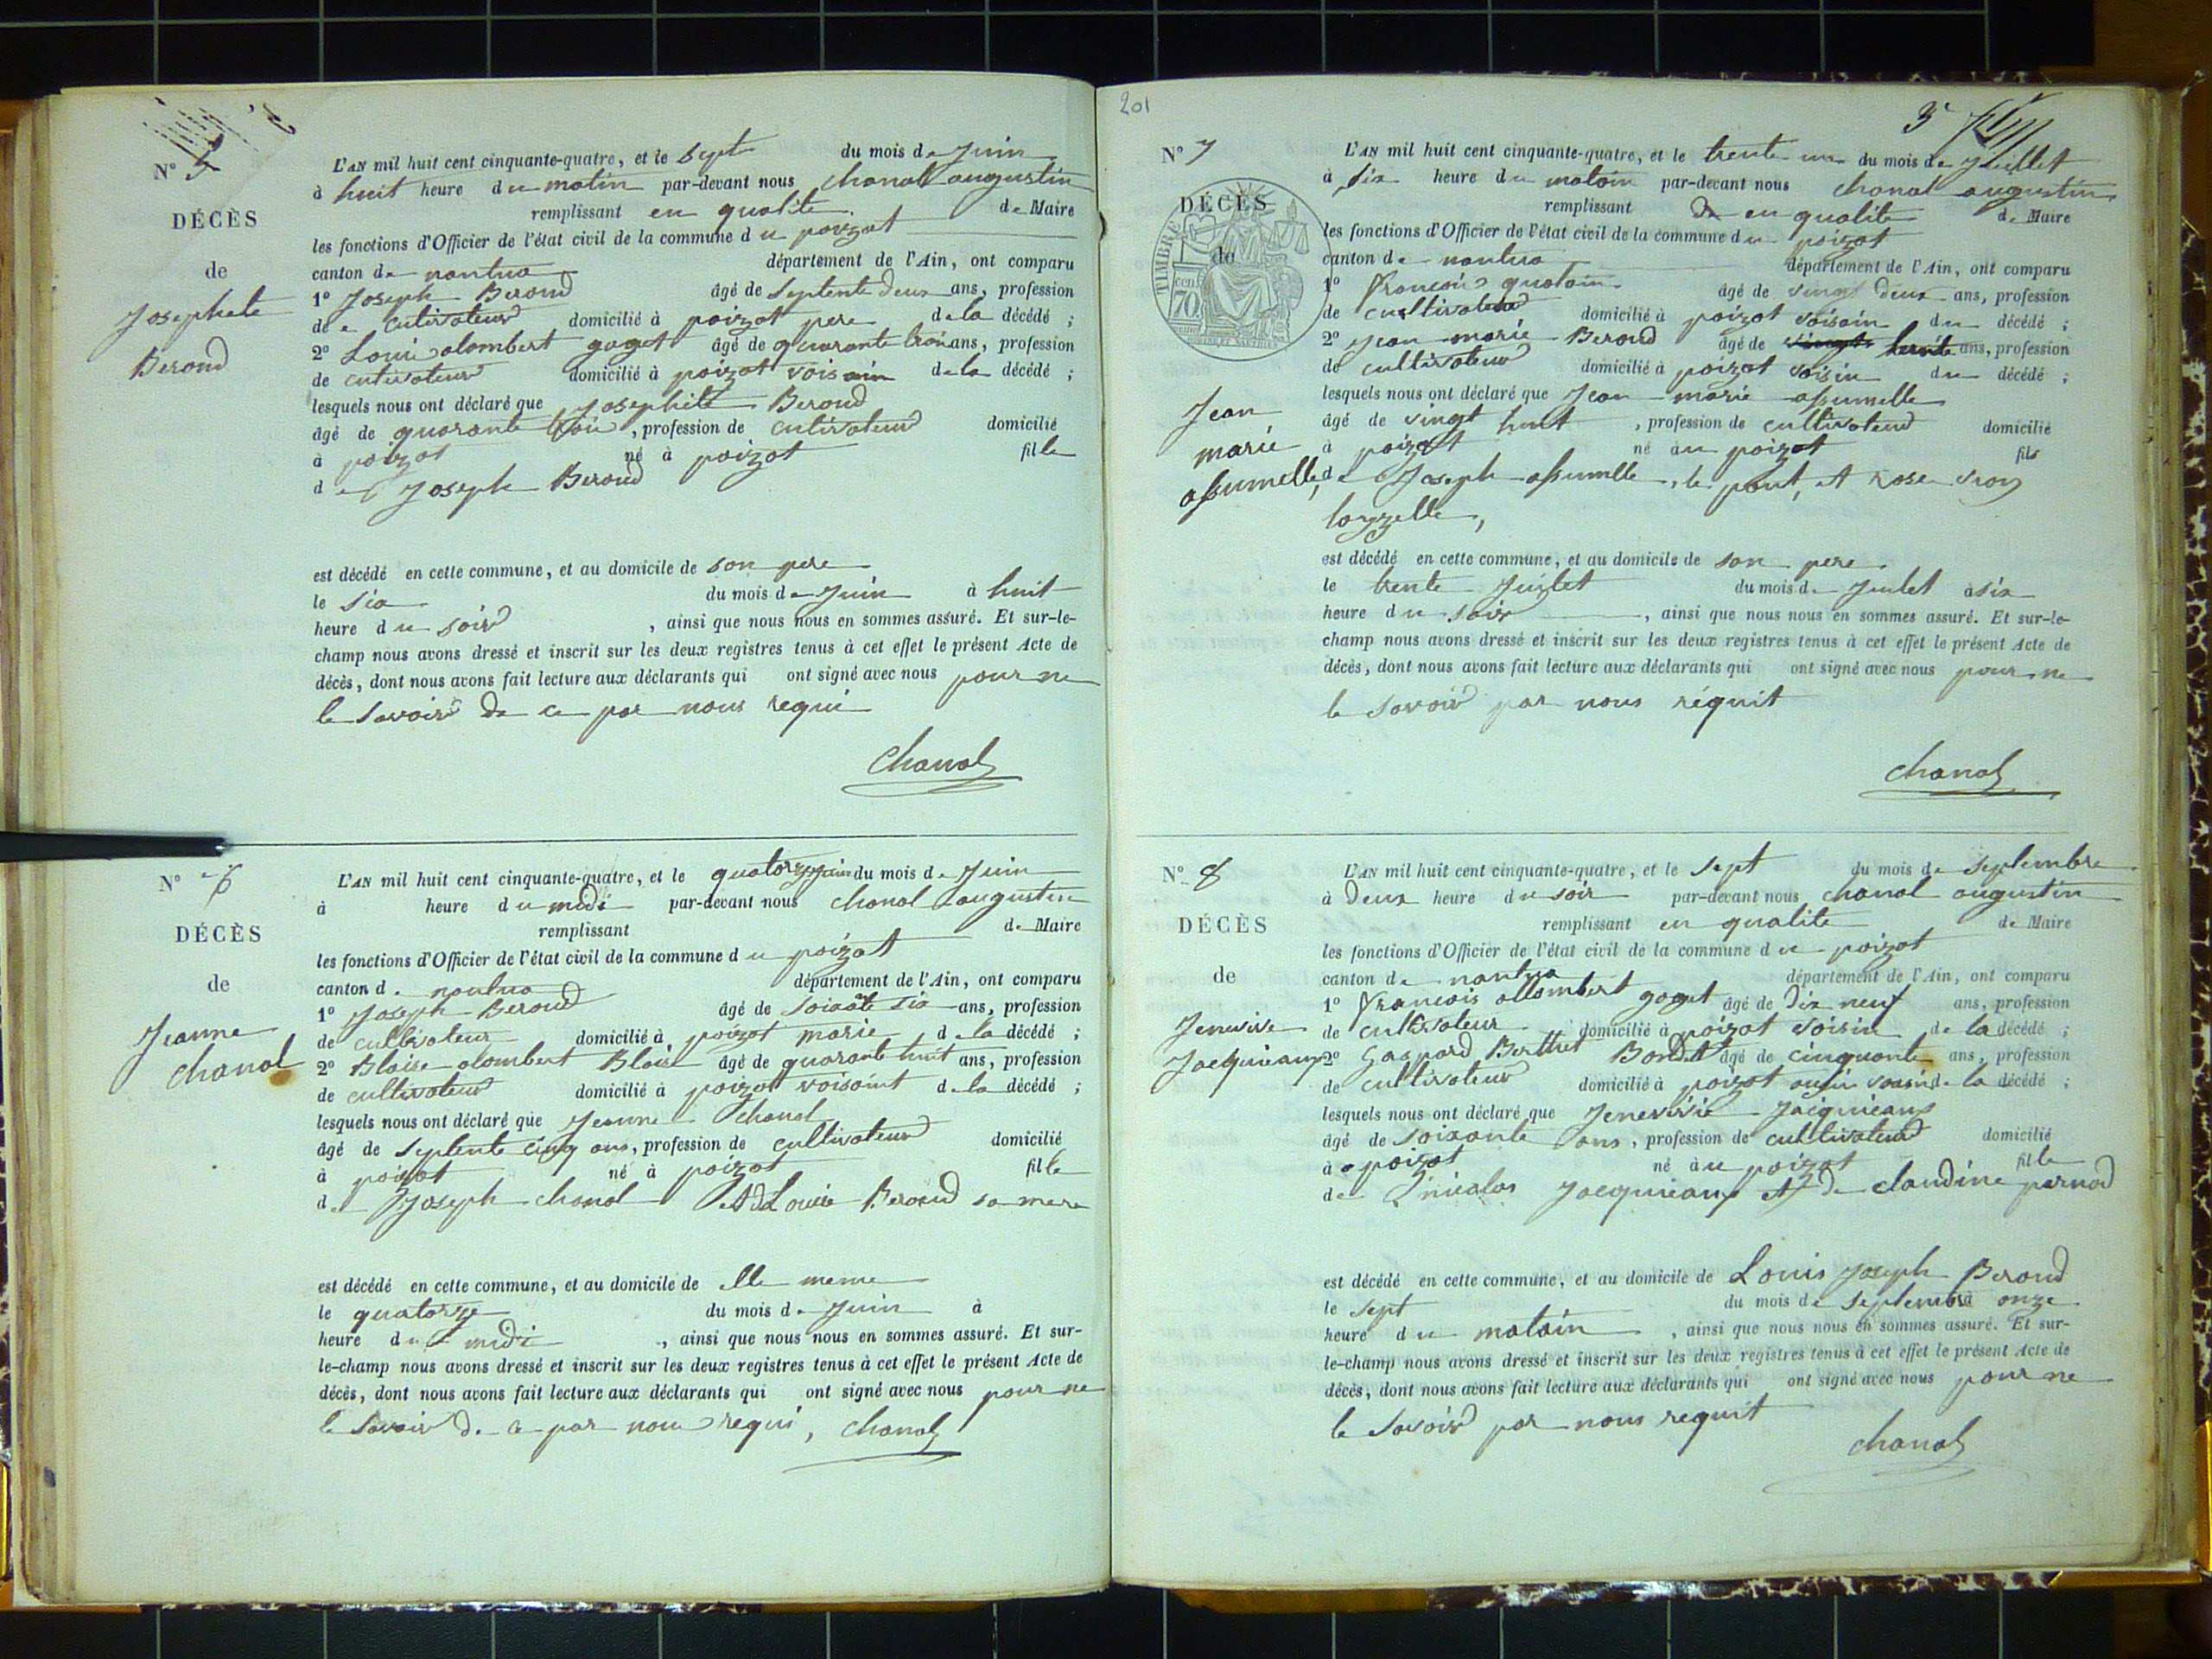 N° 5
DÉCÈS
de
Josephete
Beroud
L'AN mil huit cent cinquante-quatre, et le Sept du mois de Juin
à huit heure du matin par-devant nous chanal augustin
remplissant en qualite de Maire
les fonctions d'Officier de l'état civil de la commune du poizat
canton de nantua département de l'Ain, ont comparu
1° Joseph Beroud âgé de Septente deux ans, profession
de cutivateur domicilié à poizat pere de la décédé ;
2° Loui alombert goget âgé de quarante trois ans, profession
de cutivateur domicilié à poizat voisain de la décédé ;
lesquels nous ont déclaré que Josephete Beroud
âgé de quarante trois, profession de cutivateur domicilié
à poizat né à poizat fille
de Joseph Beroud
est décédé en cette commune, et au domicile de son pere
le Six du mois de Juin à huit
heure du soir, ainsi que nous nous en sommes assuré. Et sur-le-
champ nous avons dressé et inscrit sur les deux registres tenus à cet effet le présent Acte de
décès, dont nous avons fait lecture aux déclarants qui ont signé avec nous pour ne
le Savoir de ce par nous requi
Chanal
N° 6
DÉCÈS
de
Jeanne
chanal
L'AN mil huit cent cinquante-quatre, et le quatorze juin du mois de Juin
à heure du midi par-devant nous chanal augustin
remplissant de Maire
les fonctions d'Officier de l'état civil de la commune du poizat
canton de nantua département de l'Ain, ont comparu
1° Joseph Beroud âgé de Soixante six ans, profession
de cultivateur domicilié à poizat marie de la décédé ;
2° Blaise alombert Blaise âgé de quarante huit ans, profession
de cultivateur domicilié à poizat voisaint de la décédé ;
lesquels nous ont déclaré que Jeanne chanal
âgé de Septente cinq ans, profession de cultivateur domicilié
à poizat né à poizat fille
de Joseph chanal et de Louise Beroud sa mere
est décédé en cette commune, et au domicile de elle meme
le quatorze du mois de Juin à
heure du midi, ainsi que nous nous en sommes assuré. Et sur-
le-champ nous avons dressé et inscrit sur les deux registres tenus à cet effet le présent Acte de
décès, dont nous avons fait lecture aux déclarants qui ont signé avec nous pour ne
le Savoir de ce par nous requi, Chanal
201
3
N° 7
DÉCÈS
de
TIMBRE
70 cen.
Jean
marie
assumelle,
L'AN mil huit cent cinquante-quatre, et le trente un du mois de Juillet
à six heure du matoin par-devant nous chanal augustin
remplissant en qualite de Maire
les fonctions d'Officier de l'état civil de la commune du poizat
canton de nantua département de l'Ain, ont comparu
1° François âgé de vingt deux ans, profession
de cultivateur domicilié à poizat voisain du décédé ;
2° Jean marie Beroud âgé de trente ans, profession
de cultivateur domicilié à poizat voisin du décédé ;
lesquels nous ont déclaré que Jean marie assumelle
âgé de vingt huit, profession de cultivateur domicilié
à poizat né au poizat fils
de Joseph assumelle, le pont, et rose
est décédé en cette commune, et au domicile de son pere
le trente Juillet du mois de Juulet à six
heure du soir, ainsi que nous nous en sommes assuré. Et sur-le-
champ nous avons dressé et inscrit sur les deux registres tenus à cet effet le présent Acte de
décès, dont nous avons fait lecture aux déclarants qui ont signé avec nous pour ne
le Savoir par nous réquit
chanal
N° 8
DÉCÈS
de
Jenevive
Jacquieaup
L'AN mil huit cent cinquante-quatre, et le Sept du mois de Septembre
à Deux heure du soir par-devant nous chanal augustin
remplissant en qualite de Maire
les fonctions d'Officier de l'état civil de la commune du poizat
canton de nantua département de l'Ain, ont comparu
1° François allombert goget âgé de dix neuf ans, profession
de cultivateur domicilié à poizat voisin de la décédé ;
2° Gaspard Berthet Bondet âgé de cinquante ans, profession
de cultivateur domicilié à poizat de la décédé ;
lesquels nous ont déclaré que Jenevivie Jacquieaup
âgé de soixante ans, profession de cultivateur domicilié
à poizat né au poizat fille
de nicolas Jacquieaup et de claudine pernod
est décédé en cette commune, et au domicile de Louis Joseph Beroud
le Sept du mois de Septembre à onze
heure du matain, ainsi que nous nous en sommes assuré. Et sur-
le-champ nous avons dressé et inscrit sur les deux registres tenus à cet effet le présent Acte de
décès, dont nous avons fait lecture aux déclarants qui ont signé avec nous pour ne
le Savoir par nous requit
chanal